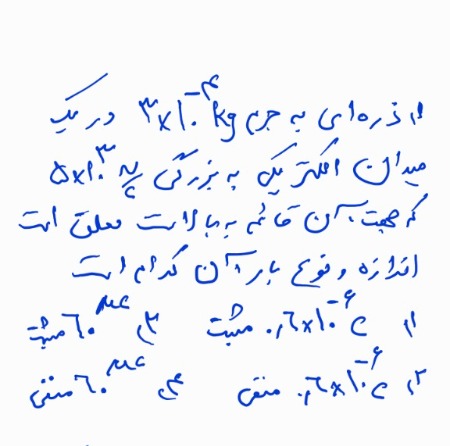 ۱) ذره‌ای به جرم ۳×۱۰⁻⁴ kg در یک
میدان الکتریکی به بزرگی ۵×۱۰³ N/C
که جهت آن قائم به بالا است معلق است
اندازه و نوع بار آن کدام است
۱) ۰٫۶×۱۰⁻⁶ C مثبت ۳) ۶۰ μC مثبت
۲) ۰٫۶×۱۰⁻⁶ C منفی ۴) ۶۰ μC منفی